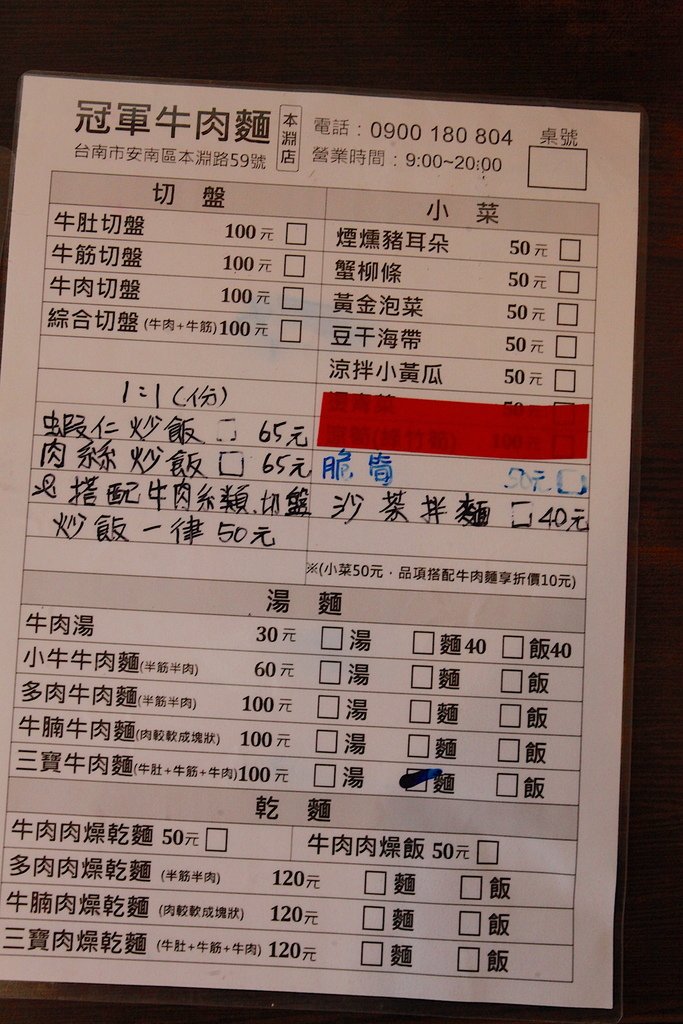 冠軍牛肉麵 本淵店
電話：0900 180 804
桌號
台南市安南區本淵路59號
營業時間：9:00~20:00
切盤
牛肚切盤 100元 □
牛筋切盤 100元 □
牛肉切盤 100元 □
綜合切盤 (牛肉+牛筋) 100元 □
1=1 (份)
蝦仁炒飯 □ 65元
肉絲炒飯 □ 65元
※搭配牛肉糸類.切盤
炒飯一律50元
小菜
煙燻豬耳朵 50元 □
蟹柳條 50元 □
黃金泡菜 50元 □
豆干海帶 50元 □
涼拌小黃瓜 50元 □
50元 □
100元 □
脆腸 50元 □
沙茶拌麵 □ 40元
※(小菜50元．品項搭配牛肉麵享折價10元)
湯麵
牛肉湯 30元 □湯 □麵40 □飯40
小牛牛肉麵(半筋半肉) 60元 □湯 □麵 □飯
多肉牛肉麵(半筋半肉) 100元 □湯 □麵 □飯
牛腩牛肉麵(肉較軟成塊狀) 100元 □湯 □麵 □飯
三寶牛肉麵(牛肚+牛筋+牛肉) 100元 □湯 □麵 □飯
乾麵
牛肉肉燥乾麵 50元 □ 牛肉肉燥飯 50元 □
多肉肉燥乾麵 (半筋半肉) 120元 □麵 □飯
牛腩肉燥乾麵 (肉較軟成塊狀) 120元 □麵 □飯
三寶肉燥乾麵 (牛肚+牛筋+牛肉) 120元 □麵 □飯